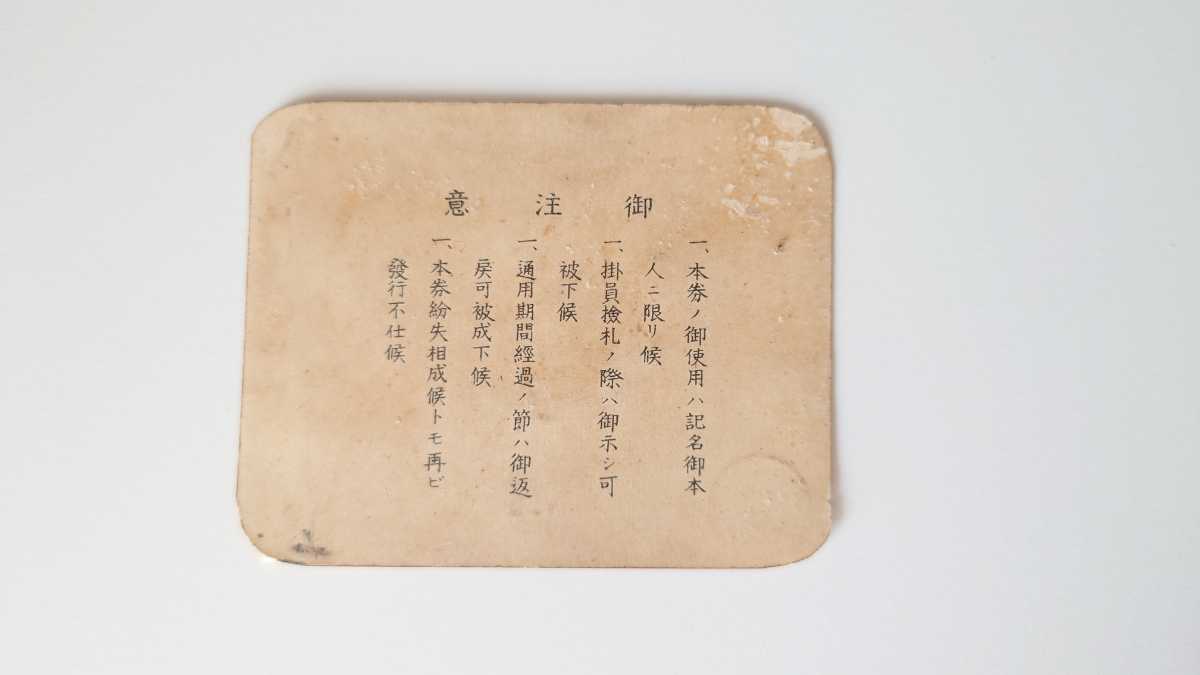 御注意
一、本券ノ御使用ハ記名御本
人ニ限リ候
一、掛員撿札ノ際ハ御示シ可
被下候
一、通用期間經過ノ節ハ御返
戻可被成下候
一、本券紛失相成候トモ再ビ
發行不仕候